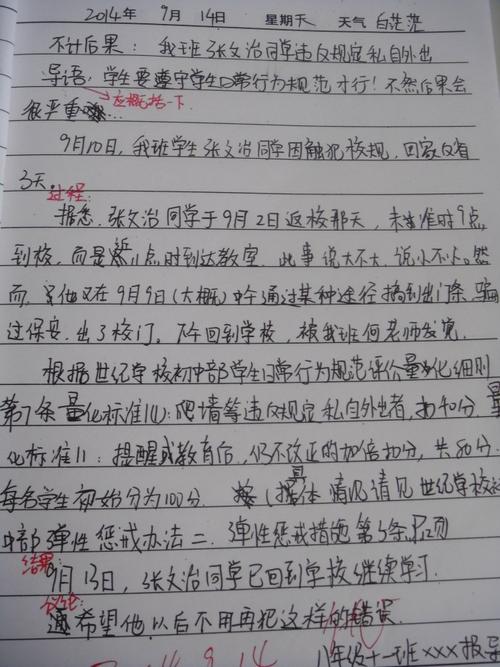 2014年 9月 14日 星期天 天气 白茫茫
不计后果：我班张文治同学违反规定私自外出
导语：学生要遵守学生日常行为规范才行！不然后果会
应概括一下
很严重...
9月10日，我班学生张文治同学因触犯校规，回家反省
3天。
过程：
据悉，张文治同学于9月2日返校那天，未准时9点
到校，而是近11点时到达教室。此事说大不大，说小不小。然
而，他又在9月9日(大概)中午通过某种途径搞到出门条，骗
过保安，出了校门。下午回到学校，被我班何老师发觉。
根据世纪学校初中部学生日常行为规范评价量化细则
第7条量化标准(1)：爬墙等违反规定私自外出者，扣40分，量
化标准11：提醒或教育后，仍不改正的加倍扣分，共80分。
每名学生初始分为100分。(具体情况请见世纪学校初
中部弹性惩戒办法二、弹性惩戒措施第3条，P12页
结果：
9月13日，张文治同学已回到学校继续学习.
议论：
希望他以后不用再犯这样的错误.
八年级十一班xxx报导